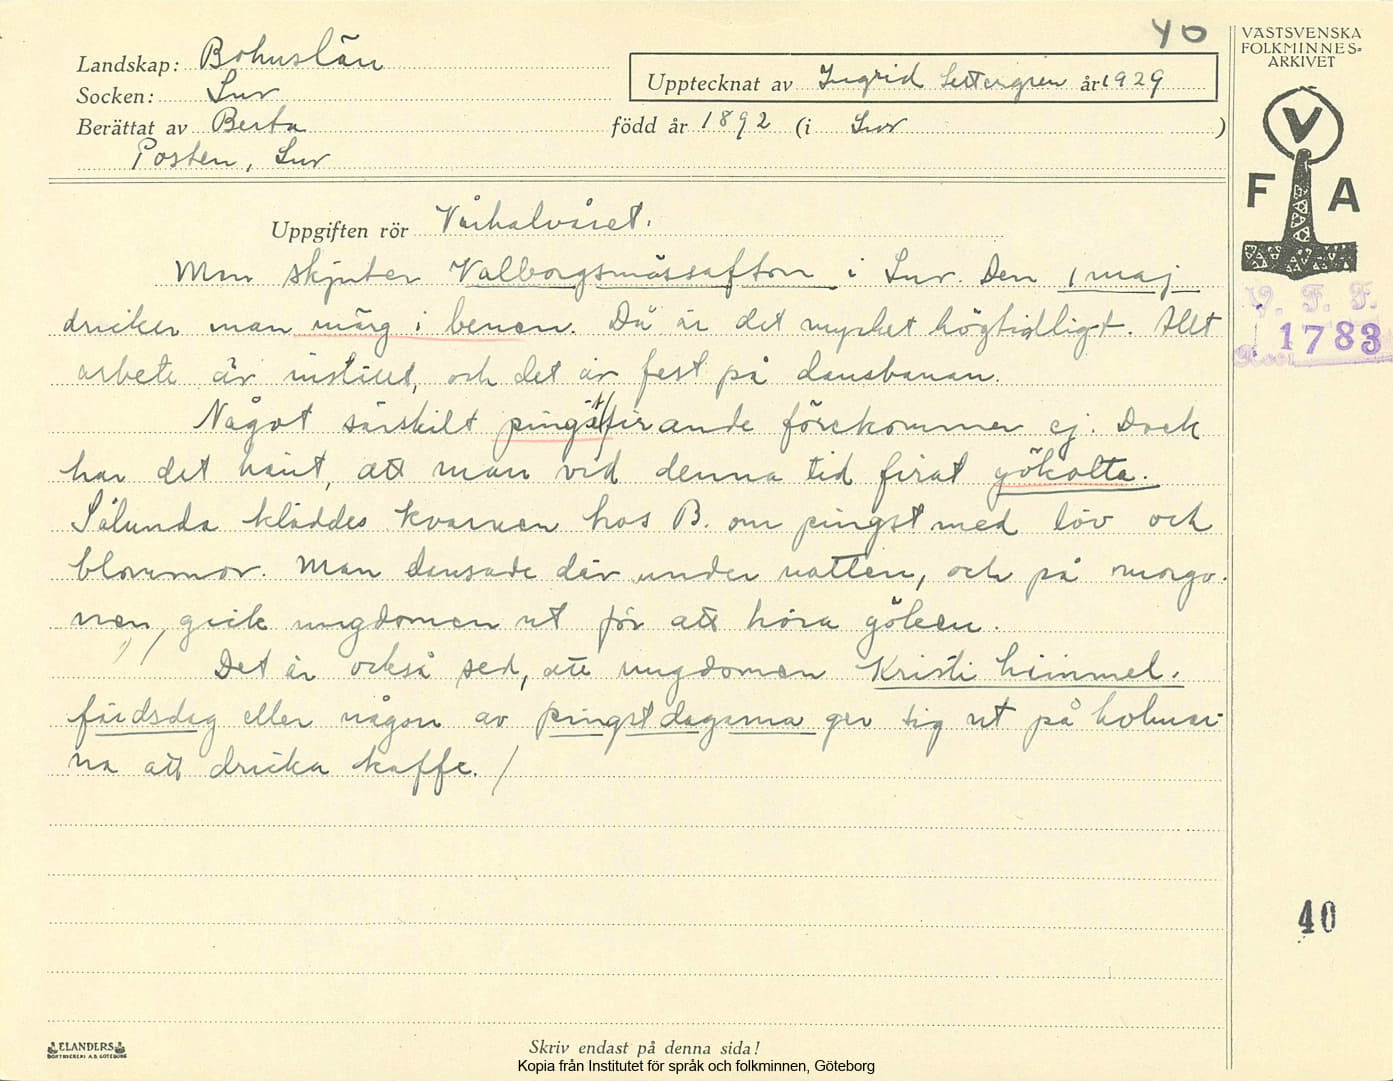 40
VÄSTSVENSKA
FOLKMINNES-
ARKIVET
Landskap: Bohuslän
Upptecknat av Ingrid Settergren år 1929
Socken: Lur
Berättat av Berta född år 1892 (i Lur )
Posten, Lur
V
F A
Uppgiften rör Vårhalvåret.
Man skjuter Valborgsmässafton i Lur. Den 1 maj
V. F. F.
1783
dricker man märg i benen. Då är det mycket högtidligt. Allt
arbete är inställt, och det är fest på dansbanan.
Något särskilt pingstfirande förekommer ej. Dock
har det hänt, att man vid denna tid firat gökotta.
Sålunda kläddes kvarnen hos B. om pingst med löv och
blommor. Man dansade där under natten, och på morgo-
nen, gick ungdomen ut för att höra göken.
Det är också sed, att ungdomen Kristi himmel-
färdsdag eller någon av pingstdagarna ger sig ut på holmar-
na att dricka kaffe.
40
ELANDERS
BOKTRYCKERI A.B. GÖTEBORG
Skriv endast på denna sida!
Kopia från Institutet för språk och folkminnen, Göteborg